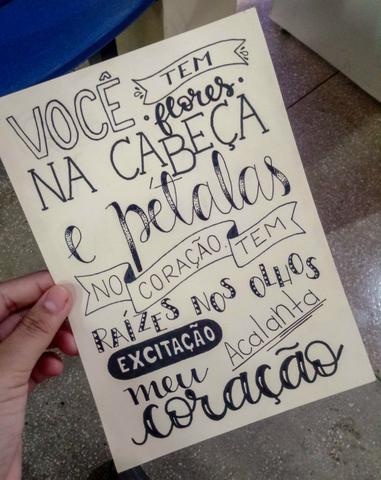 VOCÊ TEM
.flores.
NA CABEÇA
e pétalas
NO CORAÇÃO. TEM
RAÍZES NOS OLHOS
EXCITAÇÃO Acalanta
meu
coração